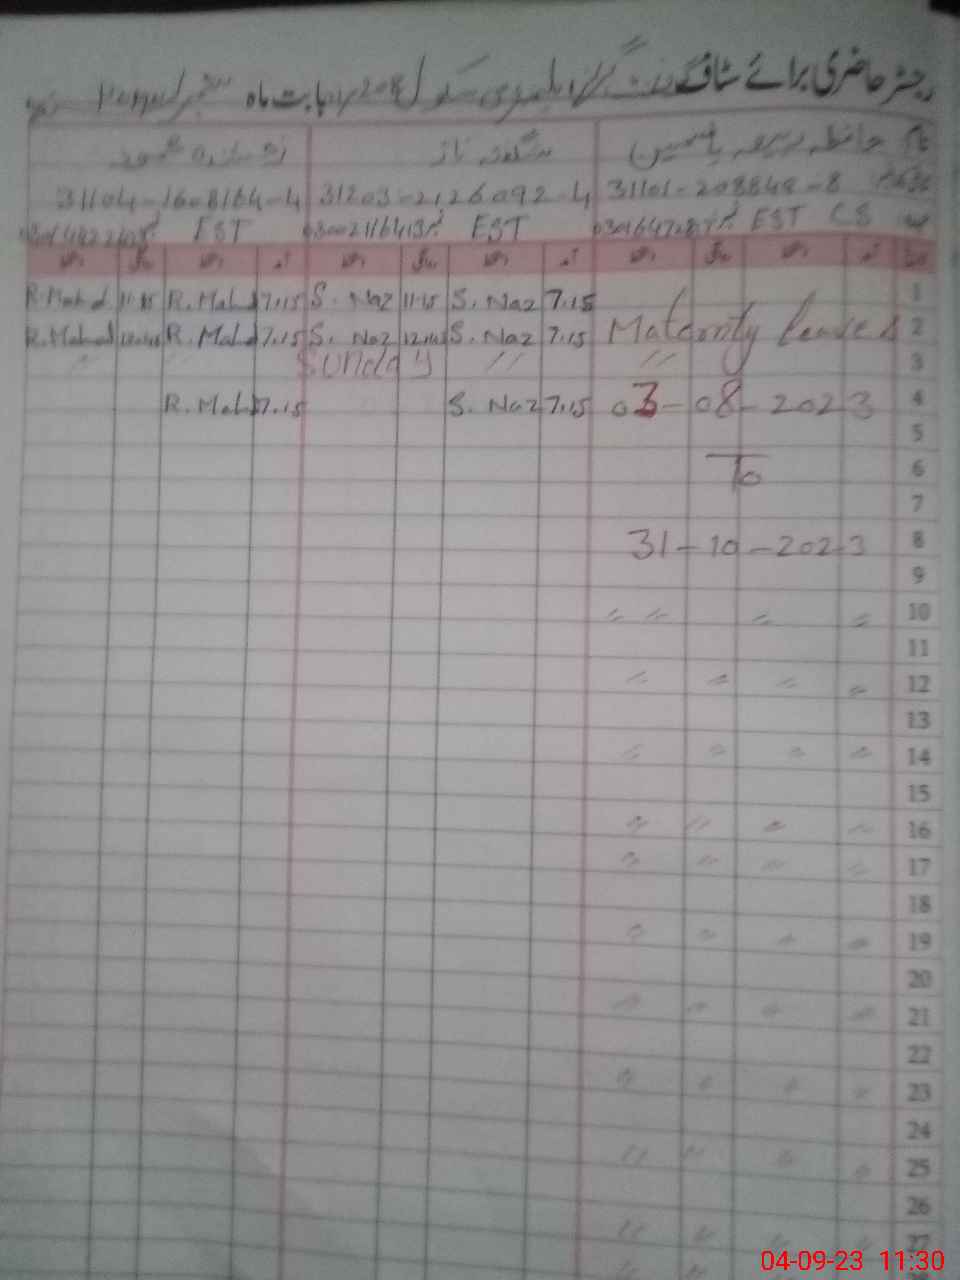 رجسٹر حاضری برائے سٹاف گورنمنٹ گرلز ایلیمنٹری سکول بابت ماہ ستمبر
نام حافظہ ربیعہ یاسمین شگفتہ ناز
31101-208848-8 31203-2126092-4 31104-16-8164-4
EST CS EST EST
تاریخ آمد دستخط روانگی دستخط آمد دستخط روانگی دستخط آمد دستخط روانگی دستخط
1 7.15 S. Naz 11.15 S. Naz 7.15 R. Mahd 11.15 R. Mahd
2 Maternity Leave 7.15 S. Naz S. Naz 7.15 R. Mahd R. Mahd
3 〃 〃 Sunday
4 03-08-2023 7.15 S. Naz 7.15 R. Mahd
5
6 To
7
8 31-10-2023
9
10 〃 〃 〃 〃
11
12 〃 〃 〃 〃
13
14 〃 〃 〃 〃
15
16 〃 〃 〃 〃
17 〃 〃 〃 〃
18
19 〃 〃 〃 〃
20
21 〃 〃 〃 〃
22
23 〃 〃 〃 〃
24
25 〃 〃 〃 〃
26
27 〃 〃 〃 〃
04-09-23 11:30